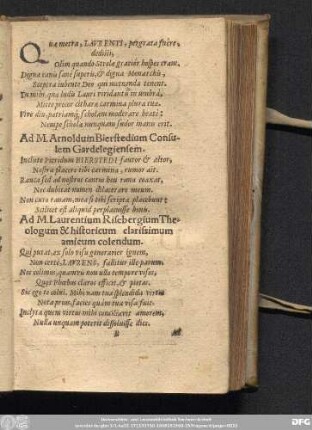 Quæ metra, LAVRENTI, pergrata fuere, dedisti,
Olim quando Strelæ gratior hospes eram,
Digna tamẽ sint superis, & digna Monarchis,
Sceptra iubente Deo qui metuenda tenent.
Tu mihi, qui ludis Lauri viridantis in umbra,
Mitte precor cithara carmina plura tua.
Vive diu, patriamq́; scholam moderare beatè:
Nempe schola nunquam sudet manus erit.
Ad M. Arnoldum Bierstedium Consulem Gardelegiensem.
Inclute Pieridum BIERSTEDI fautor & altor,
Nostra placere tibi carmina, rumor ait.
Rauca sed ad nostras cantu ceu rana coaxat,
Nec dubitat numen dilacerare meum.
Non curo ranam, mea si tibi scripta placebunt:
Scilicet est aliquid perplacuisse bonis.
Ad M. Laurentium Rischergium Theologum & historicum clarissimum
amicum colendum.
Qui putat ex solo visu generarier ignem,
Non certè, LAVRENS, fallitur ille parum.
Nos colimus, quamvis non ullo tempore visos,
Quos Phoebus claros efficit, & pietas.
Sic ego te colui. Mihi nam tua splendida virtus
Nota prius, facies quàm tua visa fuit.
Inclyta quem virtus mihi conciliavit amorem,
Nulla unquam poterit dissoluisse dies.